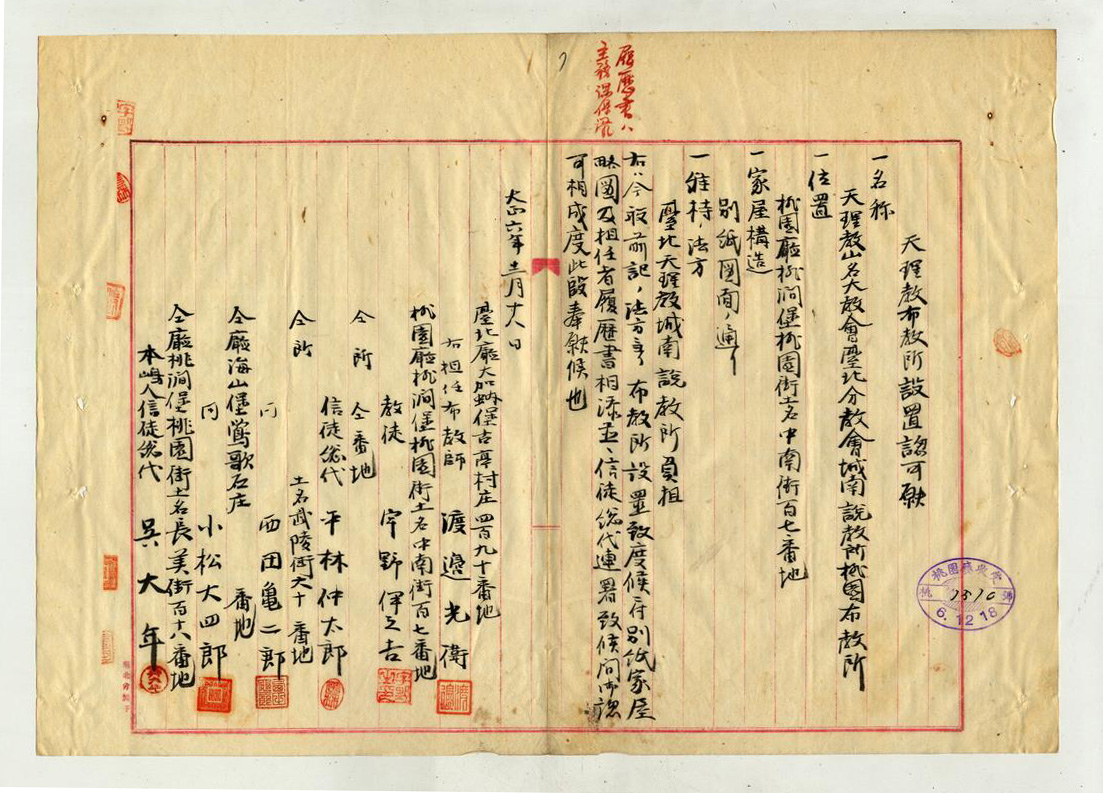 履歴書ハ
主務課保管
天理教布教所設置認可願
一名称
天理教山名大教會臺北分教會城南説教所桃園布教所
一位置
桃園廳桃澗堡桃園街土名中南街百七番地
一家屋構造
別紙図面ノ通リ
一維持ノ法方
臺北天理教城南説教所負担
右ハ今般前記ノ法方ヲ以テ布教所設置致度候ニ付別紙家屋
略図及担任者履歴書相添ヘ信徒総代連署致候間御認
可相成度此段奉願候也
大正六年十二月十八日
臺北廳大加蚋堡古亭村庄四百九十番地
右担任布教師 渡邉光衛
桃園廳桃澗堡桃園街土名中南街百七番地
教徒 宇野伊之吉
仝所 仝番地
信徒総代 平林仲太郎
仝所 土名武陵街六十番地
同 西田亀二郎
仝廳海山堡鶯歌石庄 番地
同 小松大四郎
仝廳桃澗堡桃園街土名長美街百十八番地
本嶋人信徒総代 呉大年
桃園廳
6.12.18